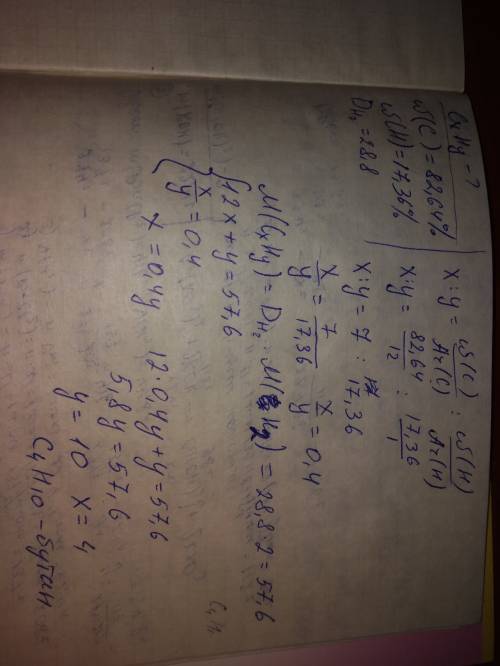 CxHy - ?
ω(C) = 82,64%
ω(H) = 17,36%
DH₂ = 28,8
x : y = ω(C)/Ar(C) : ω(H)/Ar(H)
x : y = 82,64/12 : 17,36/1
x : y = 7 : 17,36
x/y = 7/17,36 x/y = 0,4
M(CxHy) = DH₂ · M(H₂) = 28,8 · 2 = 57,6
{12x + y = 57,6
x/y = 0,4
x = 0,4y 12·0,4y + y = 57,6
5,8y = 57,6
y = 10 x = 4
C₄H₁₀ - бутан